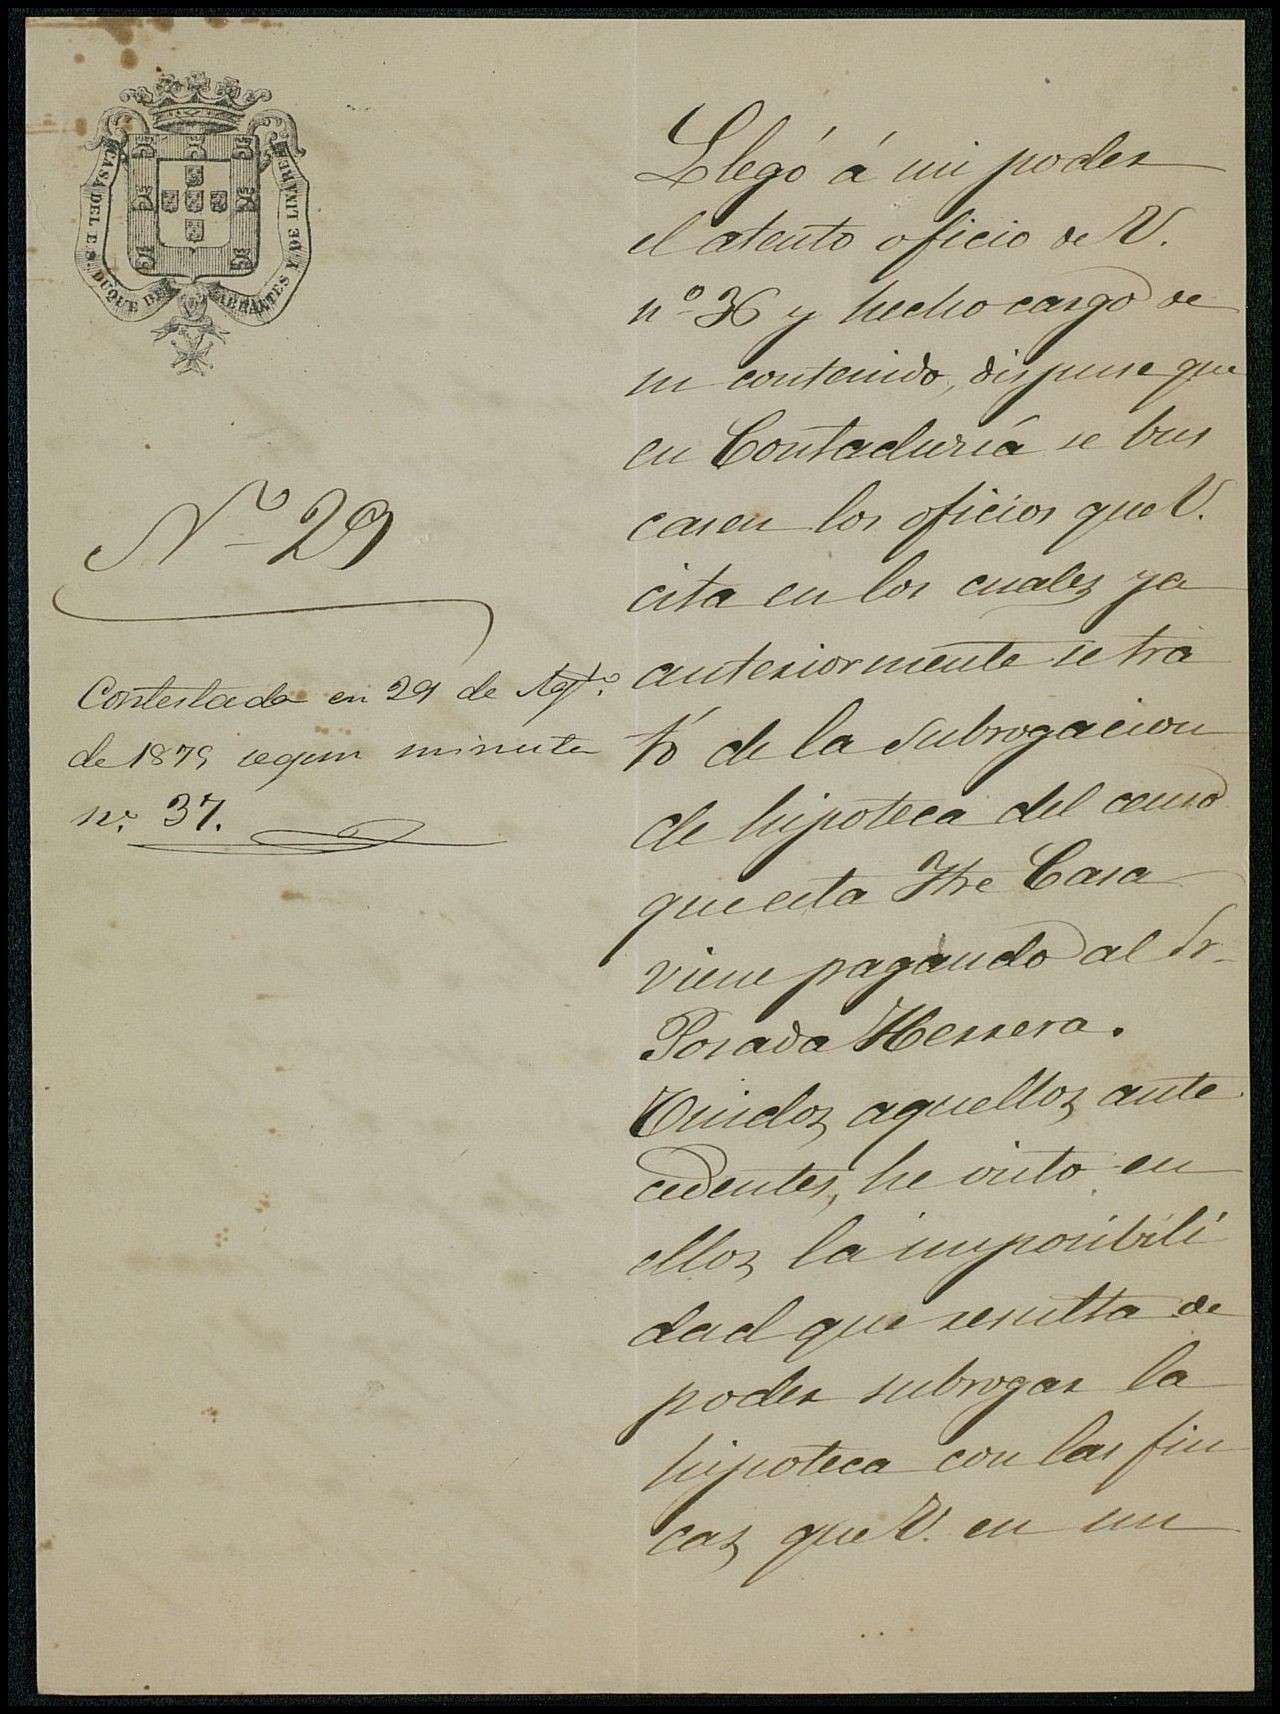 CASA DEL E. S. DUQUE DE ABRANTES Y DE LINARES
Nº 29
Contestada en 29 de Agto.
de 1879 segun minuta
nº. 37.
Llegó á mi poder
el atento oficio de V.
nº 36 y hecho cargo de
su contenido, dispuse que
en Contaduría se bus
casen los oficios que V.
cita en los cuales ya
anteriormente se tra
tó de la subrogacion
de hipoteca del censo
que esta Iltre Casa
viene pagando al Sr.
Posada Herrera.
Unidos aquellos ante
cedentes, he visto en
ellos la imposibili
dad que resulta de
poder subrogar la
hipoteca con las fin
cas que V. en un